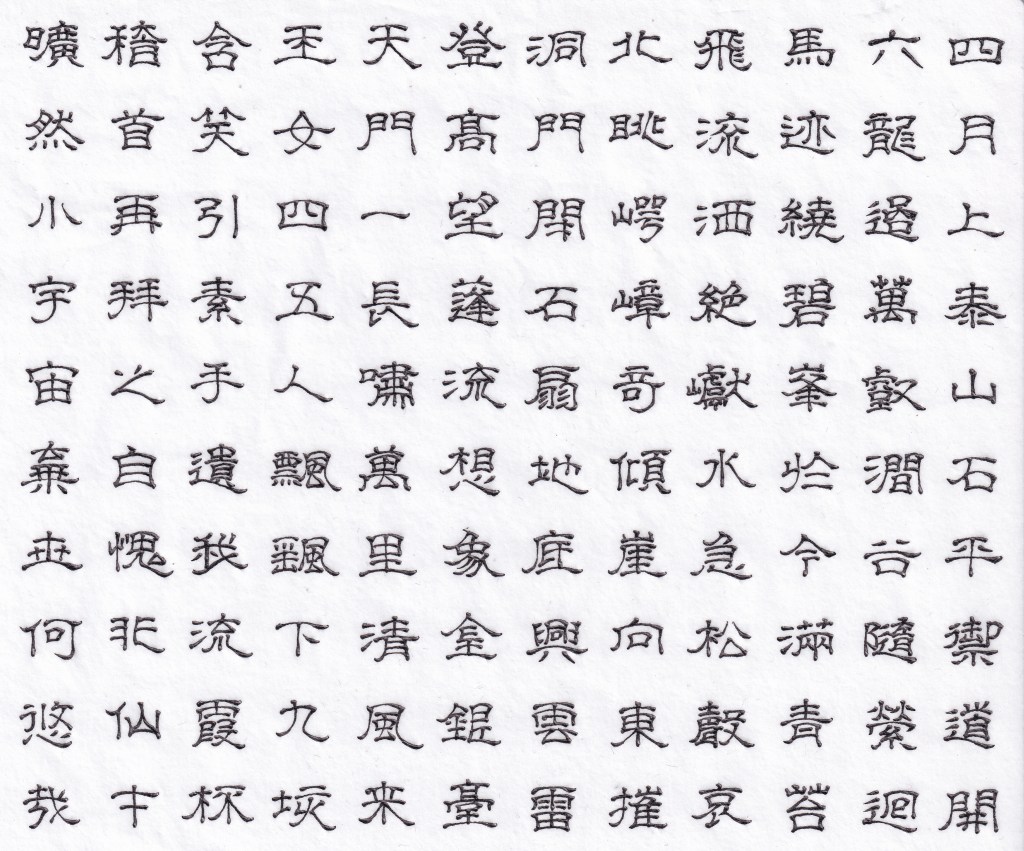 四月上泰山石平禦道開
六龍過萬壑澗谷隨縈迴
馬迹繞碧峯於今滿青苔
飛流洒絶巘水急松聲哀
北眺崿嶂奇傾崖向東摧
洞門閉石扇地底興雲雷
登高望蓬流想象金銀臺
天門一長嘯萬里清風来
玉女四五人飄颻下九垓
含笑引素手遺我流霞杯
稽首再拜之自愧非仙才
曠然小宇宙棄世何悠哉